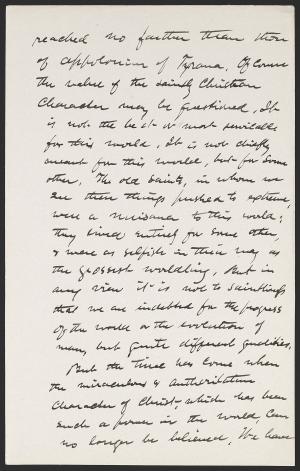 reached no farther than those
of Appolonius of Tyrana. Of course
the value of the saintly Christian
character may be questioned. It
is not the best or most servicable
for this world, it is not chiefly
meant for this world, but for some
other. The old saints, in whom we
see these things pushed to extreme,
were a nuisance to this world;
they lived entirely for some other,
& were as selfish in their way as
the grossest worldling. But in
any view it is not to saintliness
that we are indebted for the progress
of the world or the evolution of
man, but quite different qualities.
But the time has come when
the miraculous & authoritative
character of Christ, which has been
such a power in the world, can
no longer be believed. We have